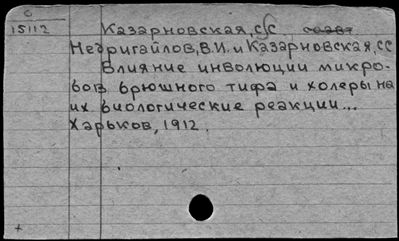 С
15112
Казарновская, С.С.
Недригайлов, В.И. и Казарновская, СС
Влияние инволюции микро-
бов брюшного тифа и холеры на
их биологические реакции...
Харьков, 1912.